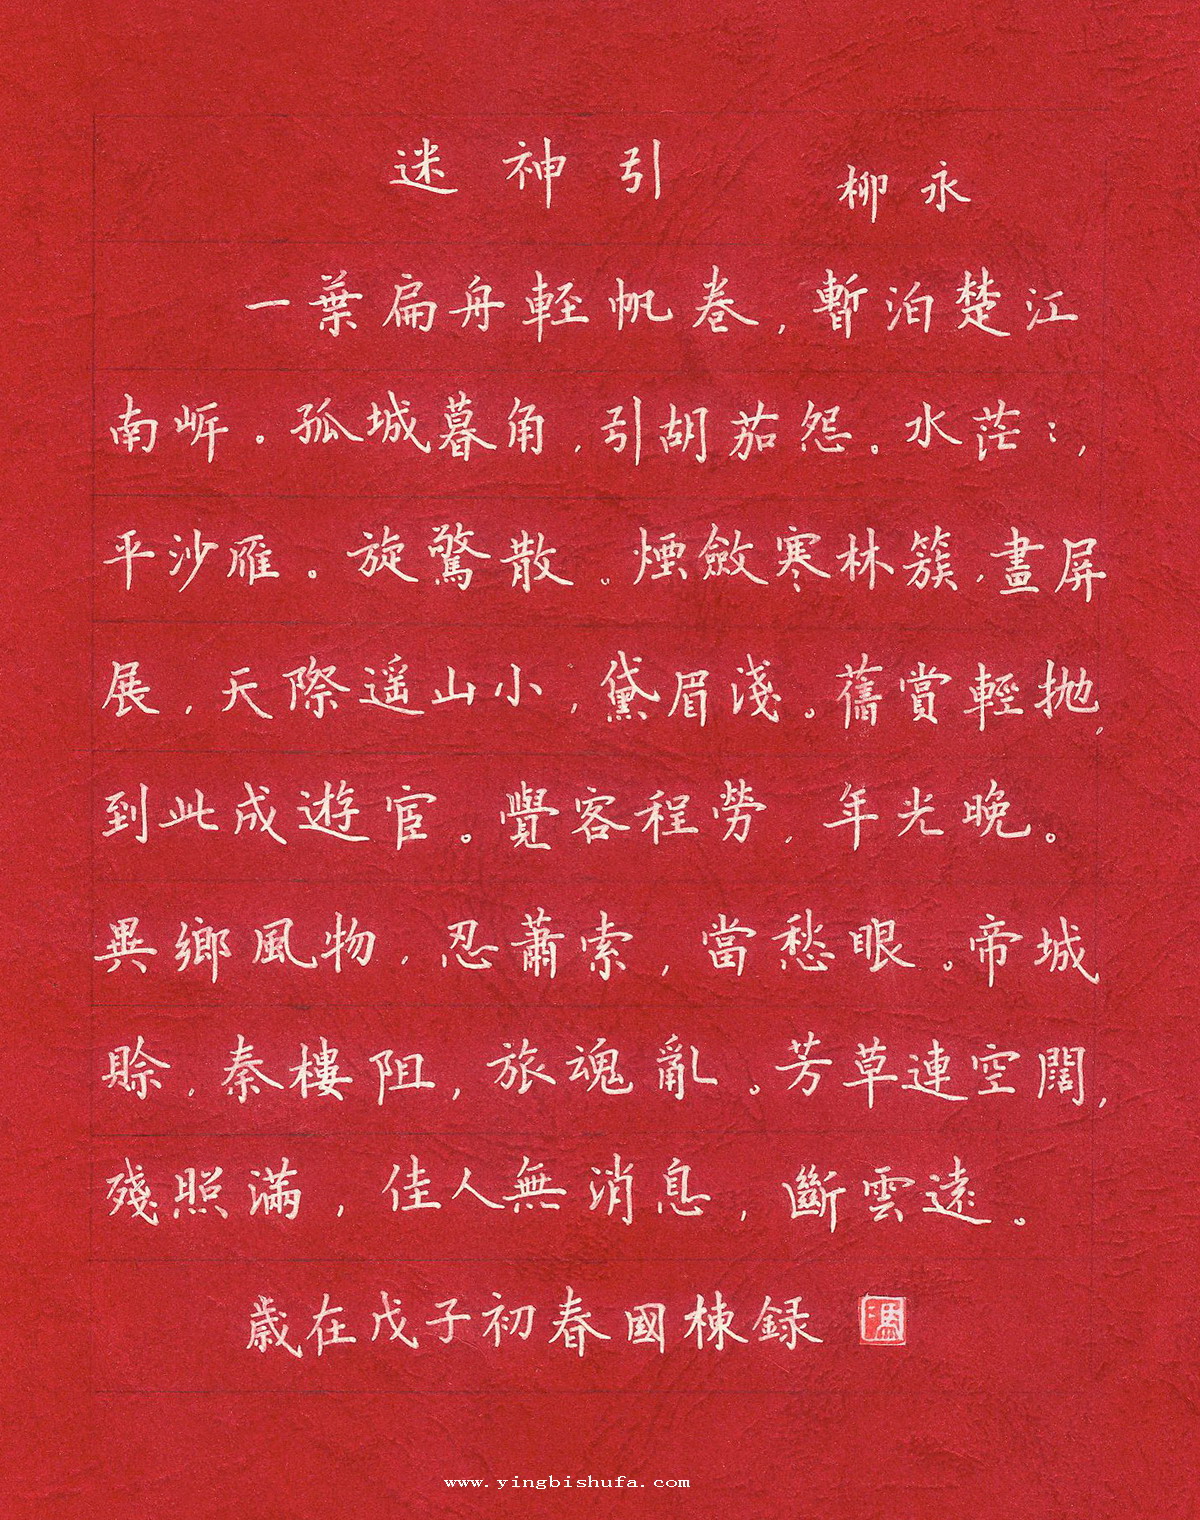 迷神引 柳永
一葉扁舟輕帆卷，暫泊楚江
南岍。孤城暮角，引胡茄怨。水茫：，
平沙雁。旋驚散。煙斂寒林簇，畫屏
展，天際遥山小，黛眉淺。舊賞輕抛，
到此成遊宦。覺客程勞，年光晚。
異鄉風物，忍蕭索，當愁眼。帝城
賒，秦樓阻，旅魂亂。芳草連空闊，
殘照滿，佳人無消息，斷雲遠。
歲在戊子初春國棟録 馮
www.yingbishufa.com